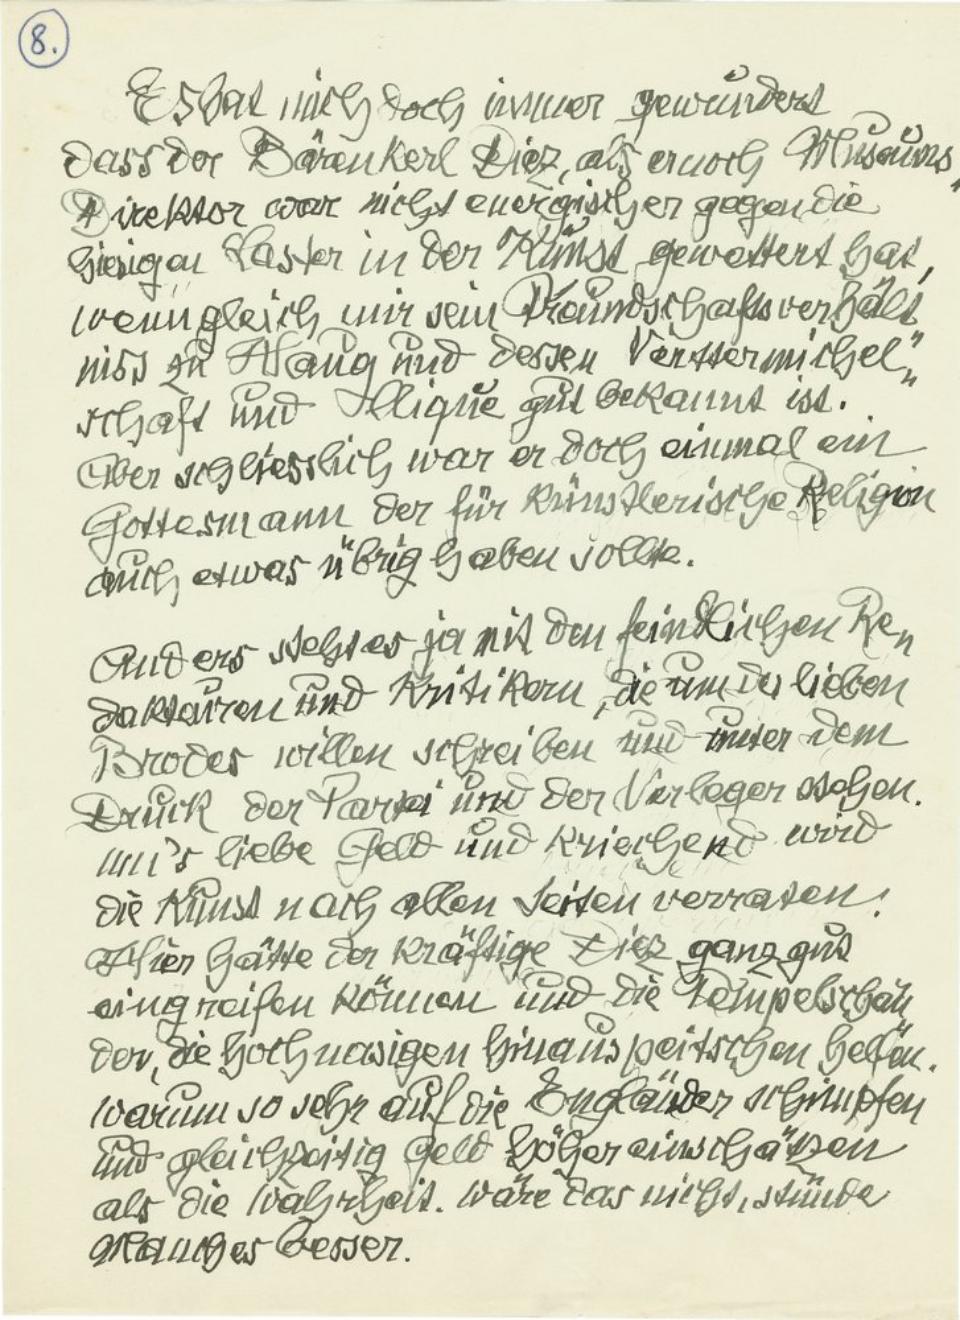 8.
Es hat mich doch immer gewundert
dass der Bärenkerl Diez, als er noch Museums„
Direktor war nicht energischer gegen die
hiesigen Laster in der Kunst gewettert hat,
wenngleich mir sein Freundschaftsverhält
niss zu Haug und dessen Vettermichel„
schaft und Klique gut bekannt ist.
Aber schliesslich war er doch einmal ein
Gottesmann der für künstlerische Religion
auch etwas übrig haben sollte.
Anders steht es ja mit den feindlichen Re„
dakteuren und Kritikern, die um des lieben
Brodes willen schreiben und unter dem
Druck der Partei und der Verleger stehen.
um's liebe Geld und kriechend wird
die Kunst nach allen Seiten verraten.
Hier hätte der kräftige Diez ganz gut
eingreifen können und die Tempelschän
der, die hochnasigen hinauspeitschen helfen.
Warum so sehr auf die Engländer schimpfen
und gleichzeitig Geld höher einschätzen
als die Wahrheit. Wäre das nicht, stünde
Manches besser.